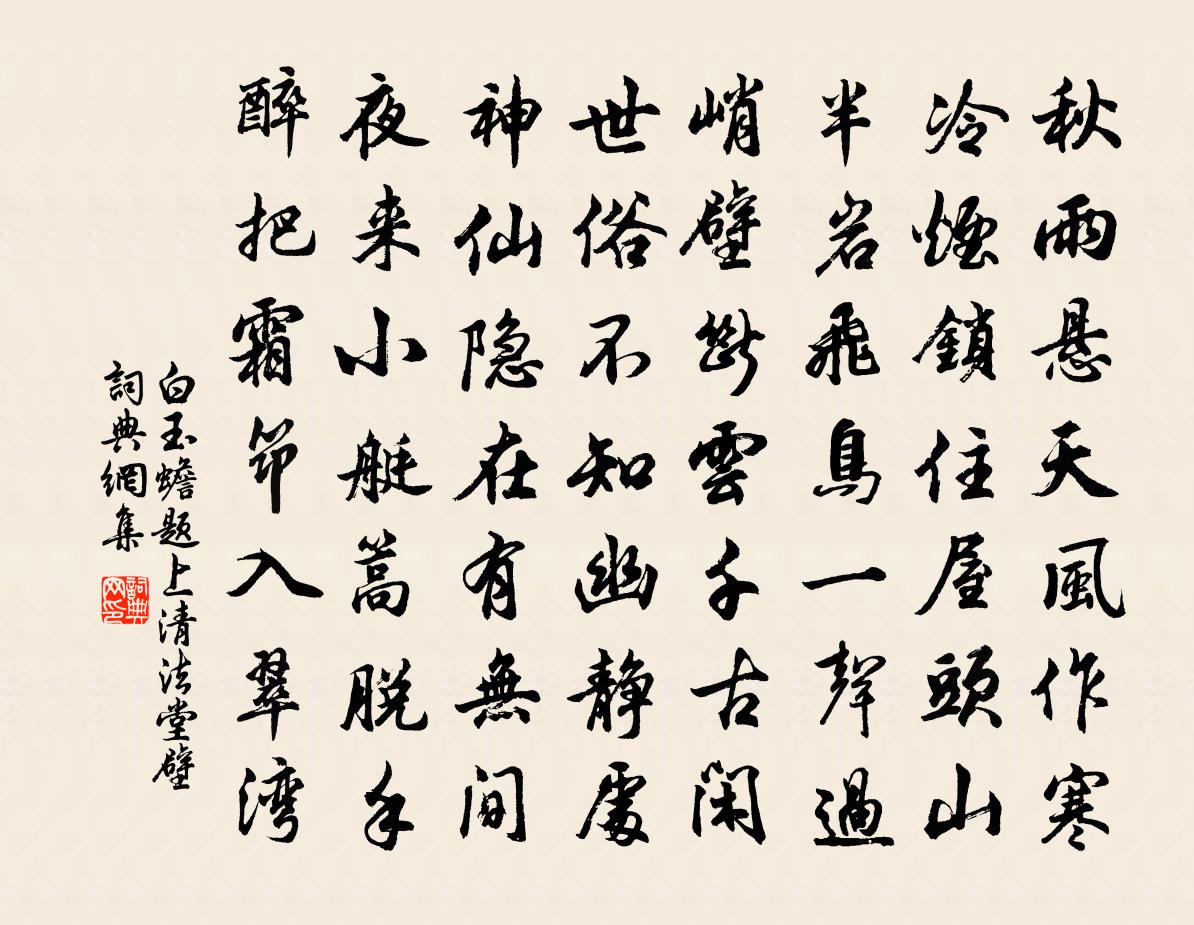 秋雨悬天風作寒
冷煙鎖住屋頭山
半岩飛鳥一聲過
峭壁斷雲千古闲
世俗不知幽静處
神仙隐在有無间
夜来小艇蒿脱手
醉把霜笻入翠湾
白玉蟾题上清法堂壁
詞典網集
詞典
网印